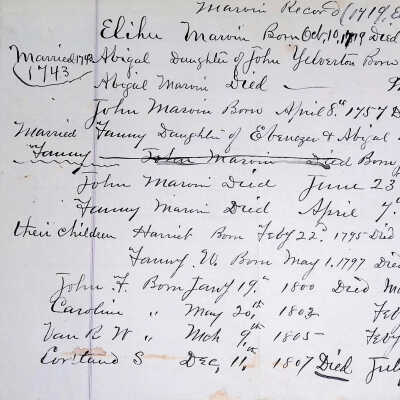 Marvin Record (1719,
Elihu Marvin Born Oct, 10, 1719 Died
Married 1742 Abigal Daughter of John Yelverton Born
1743
Abigal Marvin Died —
John Marvin Born April 8th 1757 D
Married Fanny Daughter of Ebenezer & Abigal
Fanny John Marvin Died Born
John Marvin Died June 23
Fanny Marvin Died April 7th
their children Harriet Born Feby 22d, 1795 Died
Fanny W. Born May 1, 1797 Died
John F. Born Jany 19th 1800 Died M
Caroline " May 20th, 1802 Fe
Van R W " Mch 9th, 1805 - Feby
Cortland S Dec, 11th, 1807 Died July